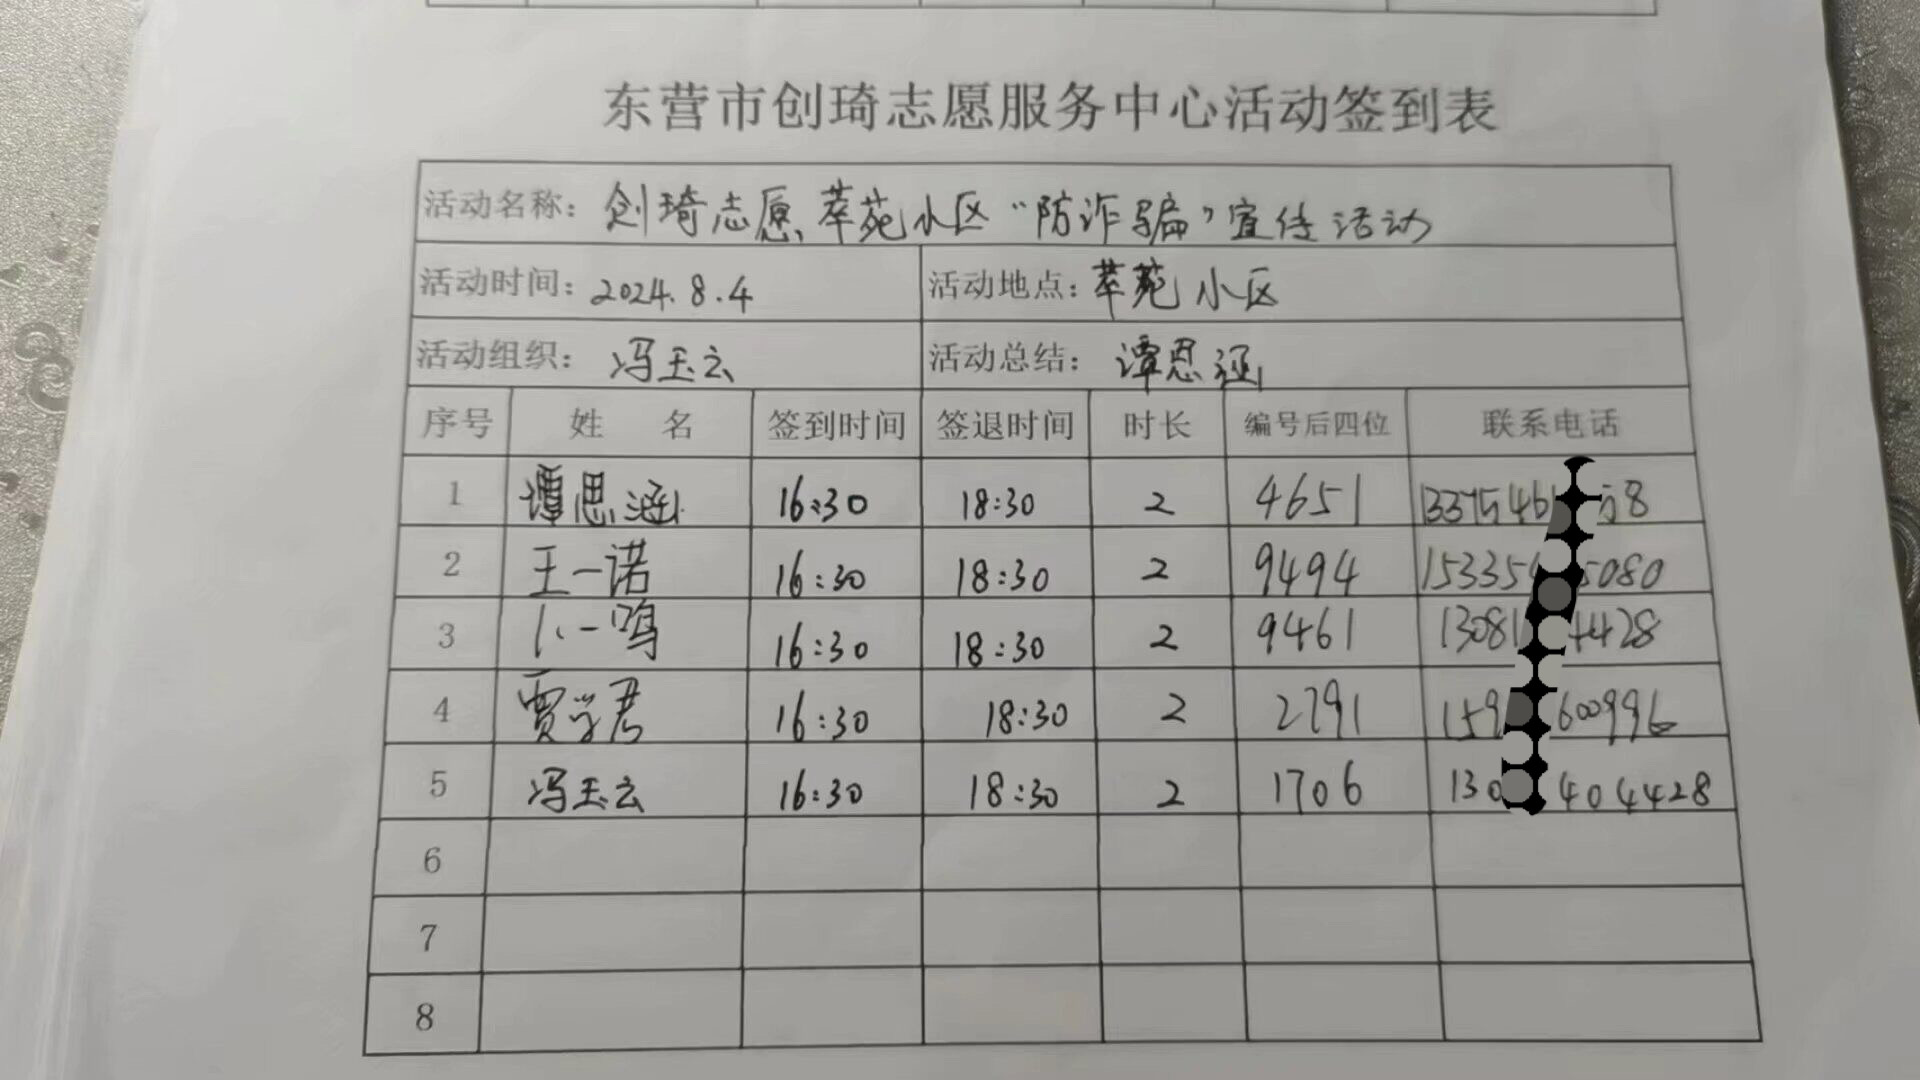 东营市创琦志愿服务中心活动签到表
活动名称：创琦志愿萃苑小区“防诈骗”宣传活动
活动时间：2024.8.4 活动地点：萃苑小区
活动组织：冯玉云 活动总结：谭思涵
序号 姓名 签到时间 签退时间 时长 编号后四位 联系电话
1 谭思涵 16:30 18:30 2 4651 1337546 8
2 王一诺 16:30 18:30 2 9494 15335 5080
3 一鸣 16:30 18:30 2 9461 13081 4428
4 贾学君 16:30 18:30 2 2791 159 600996
5 冯玉云 16:30 18:30 2 1706 130 404428
6
7
8